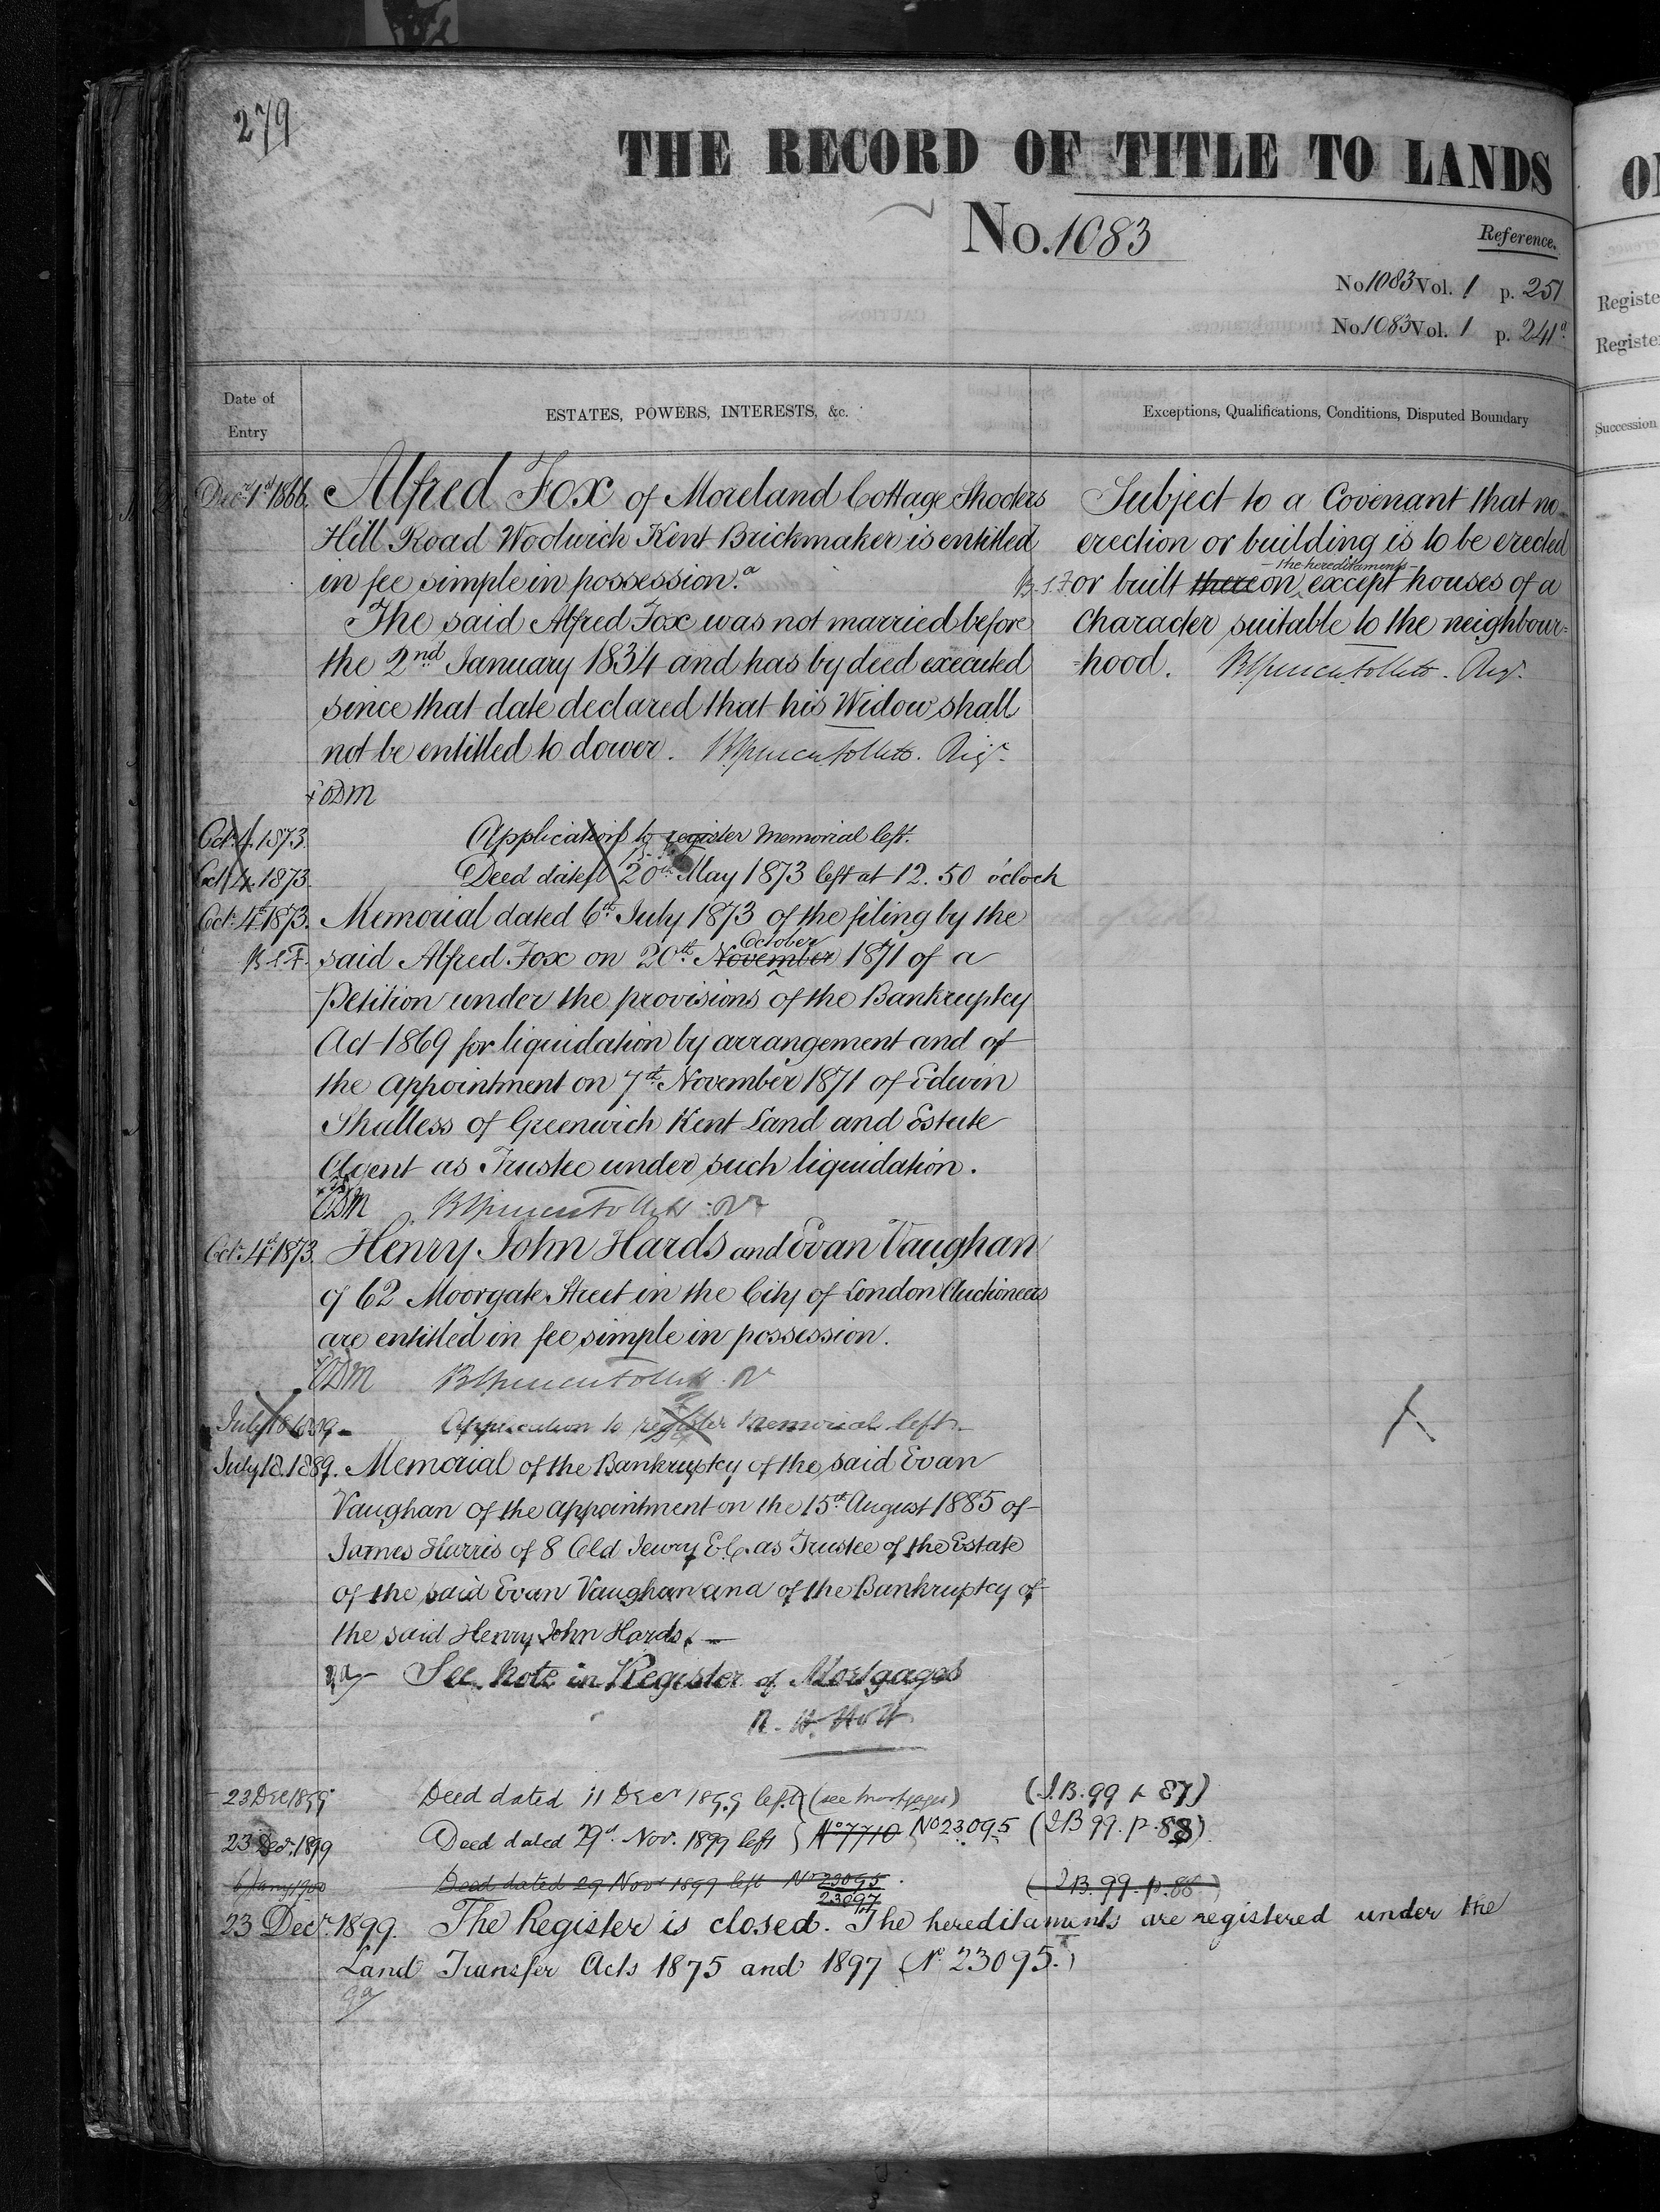 279
THE RECORD OF TITLE TO LANDS
No. 1083
Reference.
No 1083 Vol. 1 p. 251
No 1083 Vol. 1 p. 241a
Date of Entry
ESTATES, POWERS, INTERESTS, &c.
Exceptions, Qualifications, Conditions, Disputed Boundary
Decr. 1st 1866. Alfred Fox of Moreland Cottage Shooters
Hill Road Woolwich Kent Brickmaker is entitled
in fee simple in possession.a
The said Alfred Fox was not married before
the 2nd January 1834 and has by deed executed
since that date declared that his Widow shall
not be entitled to dower. B Spencer Follett. Regr.
Subject to a Covenant that no
erection or building is to be erected
B.S.F. or built thereon the hereditaments except houses of a
Character suitable to the neighbour=
=hood. B Spencer Follett. Regr.
ODM
Oct. 4. 1873. Application to register Memorial left.
Oct. 4. 1873. Deed dated 20th May 1873 left at 12.50 o'clock
Oct. 4th 1873. Memorial dated 6th July 1873 of the filing by the
B.S.F. said Alfred Fox on 20th November October 1871 of a
Petition under the provisions of the Bankruptcy
Act 1869 for liquidation by arrangement and of
the Appointment on 7th November 1871 of Edwin
Shulless of Greenwich Kent Land and Estate
Agent as Trustee under such liquidation.
ODM B Spencer Follett. Rr
Oct. 4th 1873. Henry John Hards and Evan Vaughan
of 62 Moorgate Street in the City of London Auctioneers
are entitled in fee simple in possession.
ODM B Spencer Follett. Rr
July 18 1889 - Application to register Memorial left -
July 18. 1889. Memorial of the Bankruptcy of the said Evan
Vaughan of the appointment on the 15th August 1885 of
James Harris of 8 Old Jewry E.C. as Trustee of the Estate
of the said Evan Vaughan and of the Bankruptcy of
the said Henry John Hards. -
See Note in Register of Mortgages
R. H. Holt
23 Dec 1899 Deed dated 11 Decr 1899 left (see mortgages) (I.B. 99 p 87)
23 Decr. 1899 Deed dated 29th. Nov. 1899 left No 7710 No 23095 (I B 99. p. 88)
6 Jany 1900 Deed dated 29 Novr 1899 left No 23095 23097 (I B. 99. p. 88)
23 Decr. 1899. The Register is closed. The hereditaments are registered under the
Land Transfer Acts 1875 and 1897 (No. 23095.)
Registe
Register
Succession